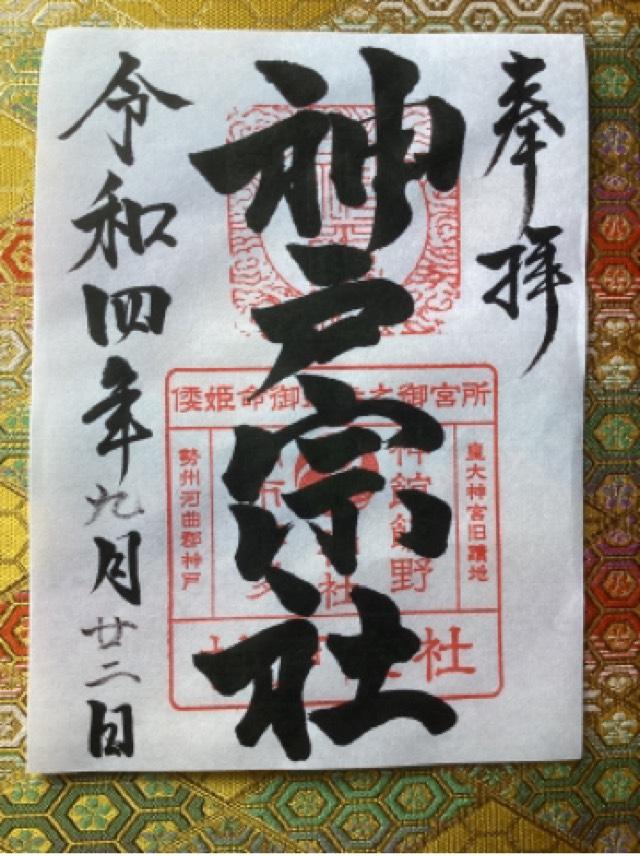 奉拝
神戸宗社
倭姫命御
御宮所
皇大神宮旧蹟地
神館飯野
社
勢州河曲郡神戸
社
令和四年九月廿二日